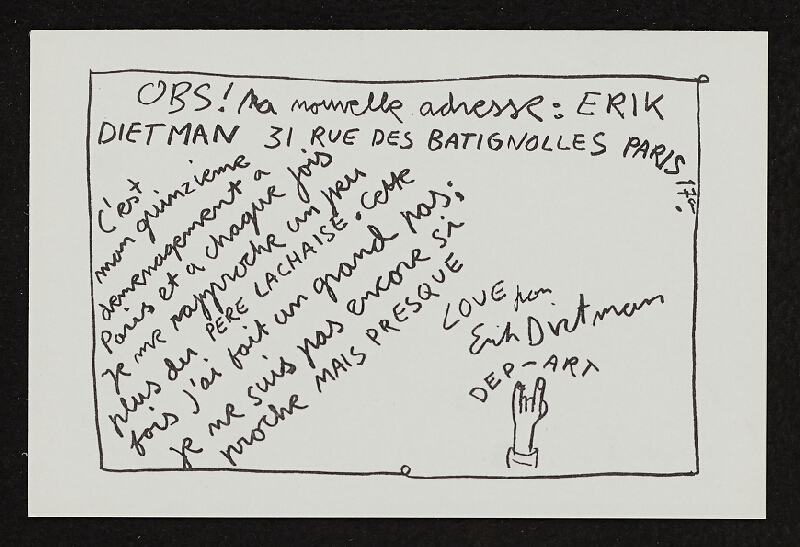 OBS! ma nouvelle adresse: ERIK
DIETMAN 31 RUE DES BATIGNOLLES PARIS
17e.
C'est
mon quinzieme
demenagement a
Paris et a chaque fois
je me rapproche un peu
plus du PÈRE LACHAISE. Cette
fois j'ai fait un grand pas;
je ne suis pas encore si
proche MAIS PRESQUE
LOVE from
Erik Dietman
DEP-ART